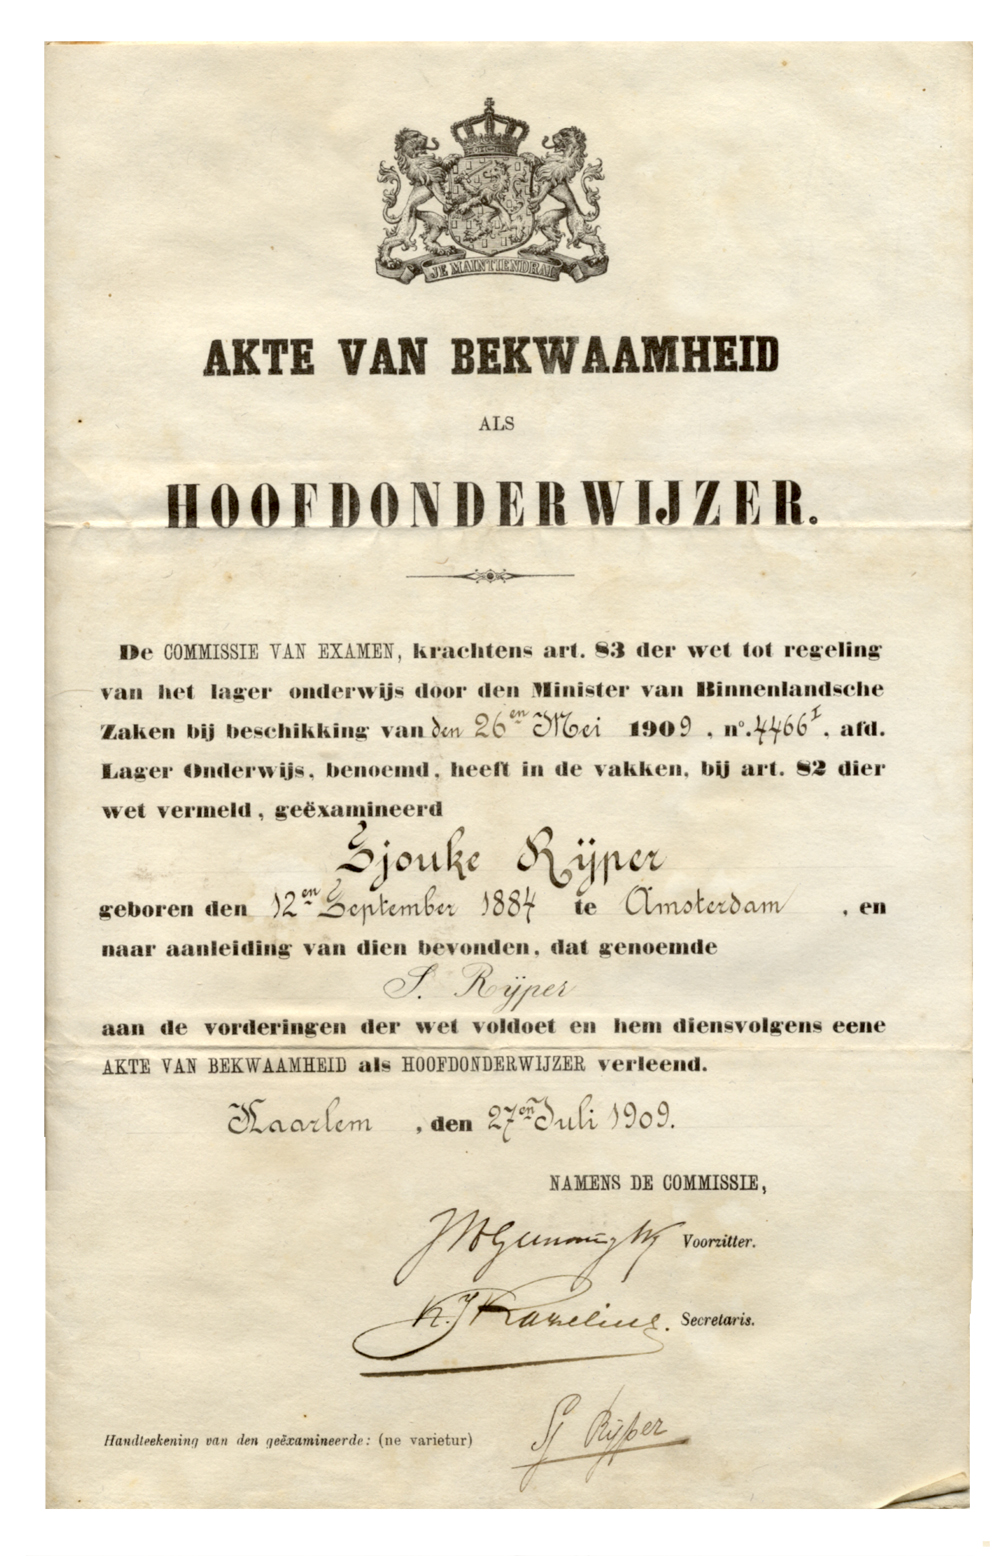 JE MAINTIENDRAI
AKTE VAN BEKWAAMHEID
ALS
HOOFDONDERWIJZER.
De COMMISSIE VAN EXAMEN, krachtens art. 83 der wet tot regeling
van het lager onderwijs door den Minister van Binnenlandsche
Zaken bij beschikking van den 26en Mei 1909, no. 4466I, afd.
Lager Onderwijs, benoemd, heeft in de vakken, bij art. 82 dier
wet vermeld, geëxamineerd
Sjouke Rÿper
geboren den 12en September 1884 te Amsterdam, en
naar aanleiding van dien bevonden, dat genoemde
S. Rÿper
aan de vorderingen der wet voldoet en hem diensvolgens eene
AKTE VAN BEKWAAMHEID als HOOFDONDERWIJZER verleend.
Haarlem, den 27en Juli 1909.
NAMENS DE COMMISSIE,
Voorzitter.
Secretaris.
Handteekening van den geëxamineerde: (ne varietur) Sj Rÿper